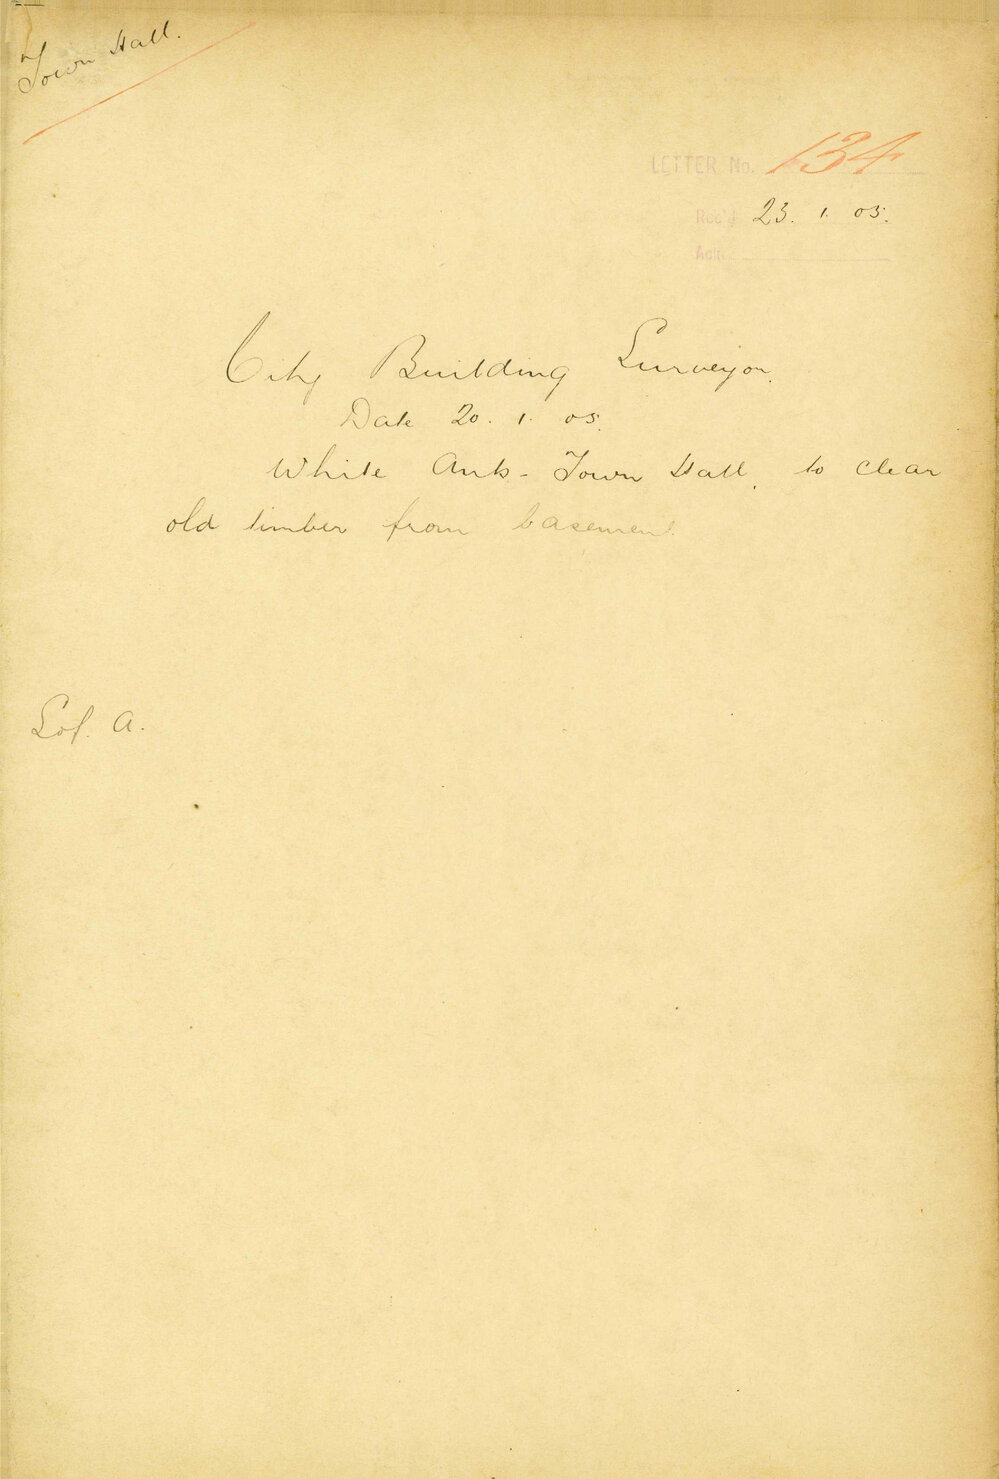 Town Hall.
LETTER No. 134
Rec'd 23. 1. 05.
Ack.
City Building Surveyor.
Date 20. 1. 05.
White Ants - Town Hall, to clear
old timber from basement.
A.